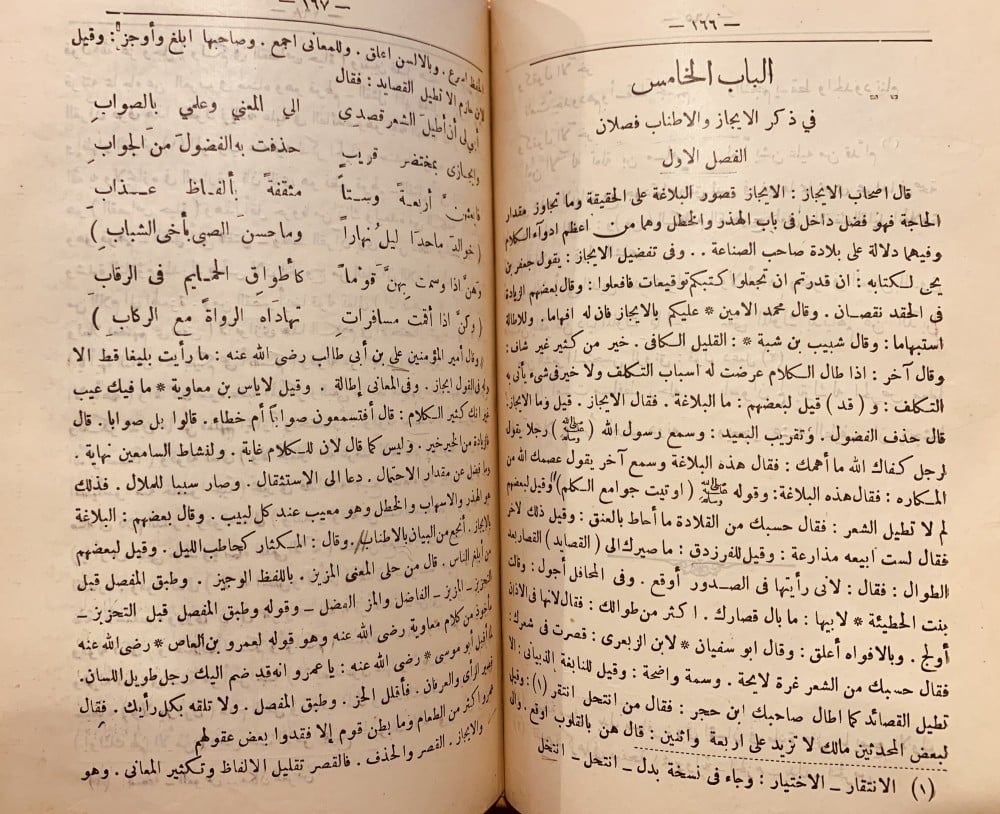 — ١٦٦ —
الباب الخامس
في ذكر الايجاز والاطناب فصلان
الفصل الاول
قال اصحاب الايجاز : الايجاز قصور البلاغة على الحقيقة وما تجاوز مقدار
الحاجة فهو فضل داخل في باب الهذر والخطل وهما من اعظم ادوآء الكلام
وفيهما دلالة على بلادة صاحب الصناعة . . وفى تفضيل الايجاز : يقول جعفر بن
يحيى لكتابه : ان قدرتم ان تجعلوا كتبكم توقيعات فافعلوا : وقال بعضهم الزيادة
فى الحقد نقصان . وقال محمد الامين * عليكم بالايجاز فان له افهاما . وللاطالة
استبهاما : وقال شبيب بن شبة * : القليل الكافى . خير من كثير غير شاف :
وقال آخر : اذا طال الكلام عرضت له اسباب التكلف ولا خير فى شىء يأتى به
التكلف : و ( قد ) قيل لبعضهم : ما البلاغة . فقال الايجاز . قيل وما الايجاز
قال حذف الفضول . وتقريب البعيد : وسمع رسول الله ( ﷺ ) رجلا يقول
لرجل كفاك الله ما أهمك : فقال هذه البلاغة وسمع آخر يقول عصمك الله من
المكاره : فقال هذه البلاغة : وقوله ﷺ ( اوتيت جوامع الكلم ) وقيل لبعضهم
لم لا تطيل الشعر : فقال حسبك من القلادة ما أحاط بالعنق : وقيل ذلك لآخر
فقال لست ابيعه مذارعة : وقيل للفرزدق : ما صيرك الى ( القصايد ) القصار بعد
الطوال : فقال : لانى رأيتها فى الصدور أوقع . وفى المحافل أجول : وقالت
بنت الحطيئة * لابيها : ما بال قصارك . اكثر من طوالك : فقال لانها فى الآذان
أولج . وبالافواه أعلق : وقال ابو سفيان * لابن الزبعرى : قصرت فى شعرك :
فقال حسبك من الشعر غرة لايحة . وسمة واضحة : وقيل للنابغة الذبيانى : الا
تطيل القصائد كما اطال صاحبك ابن حجر : فقال من انتحل انتقر (١) : وقيل
لبعض المحدثين مالك لا تزيد على اربعة واثنين : قال هن بالقلوب اوقع . والى
(١) الانتقار ـ الاختيار : وجاء فى نسخة بدل ـ انتحل ـ انتخل
— ١٦٧ —
الحفظ اسرع . وبالالسن اعلق . وللمعانى اجمع . وصاحبها ابلغ وأوجز : وقيل
لابن حازم الا تطيل القصايد : فقال
أبى لى أن أطيل الشعر قصدى الى المعنى وعلمى بالصواب
وايجازى بمختصر قريب حذفت به الفضول من الجواب
فابعثهن أربعة وستا مثقفة بألفاظ عذاب
( خوالد ما حدا ليل نهارا وما حسن الصبى بأخى الشباب )
وهن اذا وسمت بهن قوما كأطواق الحمايم فى الرقاب
( وكن اذا أقمت مسافرات تهاداه الرواة مع الركاب )
وقال أمير المؤمنين على بن أبى طالب رضى الله عنه : ما رأيت بليغا قط الا
وله فى القول ايجاز . وفى المعانى إطالة . وقيل لاياس بن معاوية * ما فيك عيب
غير انك كثير الكلام : قال أفتسمعون صوابا أم خطاء . قالوا بل صوابا . قال
فالزيادة من الخير خير . وليس كما قال لان للكلام غاية . ولنشاط السامعين نهاية .
وما فضل عن مقدار الاحتمال . دعا الى الاستثقال . وصار سببا للملال . فذلك
هو الهذر والاسهاب والخطل وهو معيب عند كل لبيب . وقال بعضهم : البلاغة
بالايجاز . أنجع من البيان بالاطناب . وقال : المكثار كحاطب الليل . وقيل لبعضهم
من أبلغ الناس . قال من حلى المعنى المزيز . باللفظ الوجيز . وطبق المفصل قبل
التحزيز ـ المزيز ـ الفاضل والمز الفضل ـ وقوله وطبق المفصل قبل التحزيز ـ
مأخوذ من كلام معاوية رضى الله عنه وهو قوله لعمرو بن العاص * رضى الله عنه
لما أقبل أبو موسى * رضى الله عنه : يا عمرو انه قد ضم اليك رجل طويل اللسان.
قصير الرأى والعرفان . فأقلل الحز . وطبق المفصل . ولا تلقه بكل رأيك . فقال
عمرو اكثر من الطعام وما بطن قوم إلا فقدوا بعض عقولهم
والايجاز . القصر والحذف . فالقصر تقليل الالفاظ وتكثير المعانى . وهو